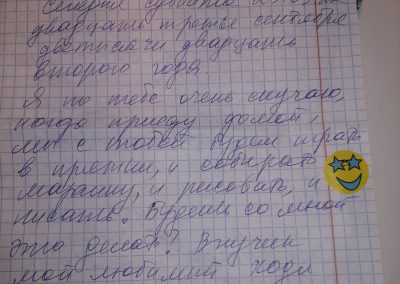 Сегодня суббота
двадцать третье сентября
две тысячи двадцать
второго года
Я по тебе очень скучаю,
когда приеду домой,
мы с тобой будем играть
в прятки, и собирать
и рисовать, и
писать. Будешь со мной
это делать?
мой любимий